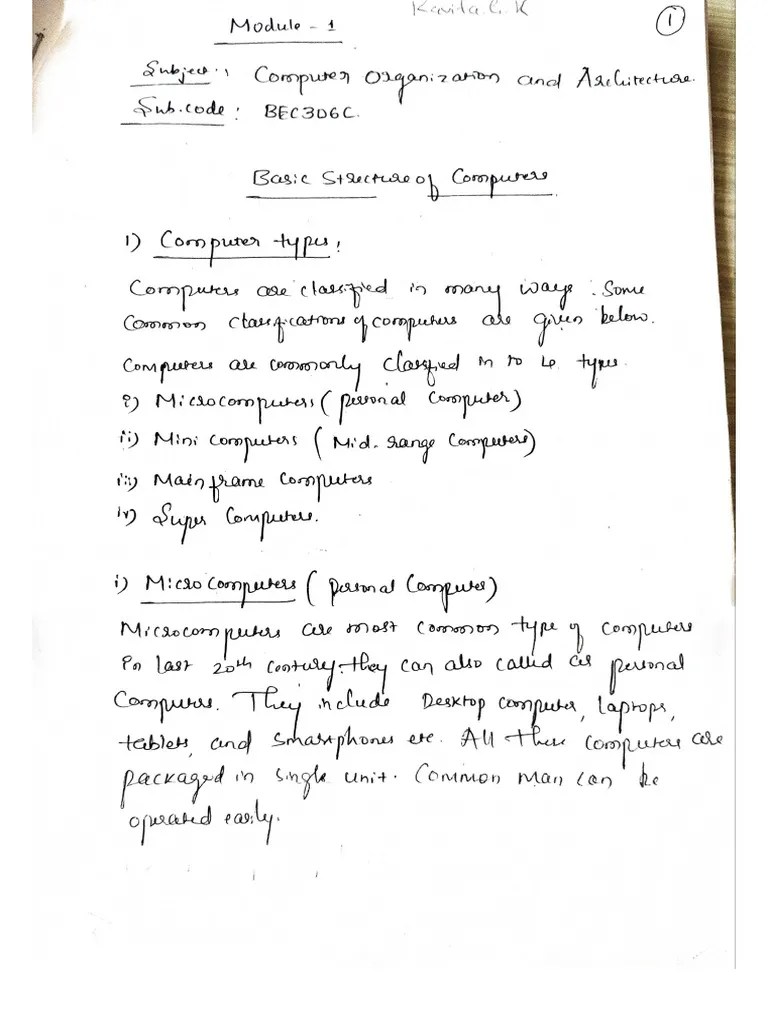 Kavita.G.K
1
Module - 1
Subject : Computer Organization and Architecture.
Sub.code : BEC306C.
Basic Structure of Computers
1) Computer types :
Computers are classified in many ways. Some
common classifications of computers are given below.
Computers are commonly classified in to 4 types.
i) Microcomputers (personal computer)
ii) Mini computers (Mid-range computers)
iii) Mainframe computers
iv) Super computers.
i) Microcomputers (personal computer)
Microcomputers are most common type of computers
in last 20th century. they can also called as personal
computers. They include Desktop computer, laptops,
tablets, and smartphones etc. All these computers are
packaged in single unit. Common man can be
operated easily.